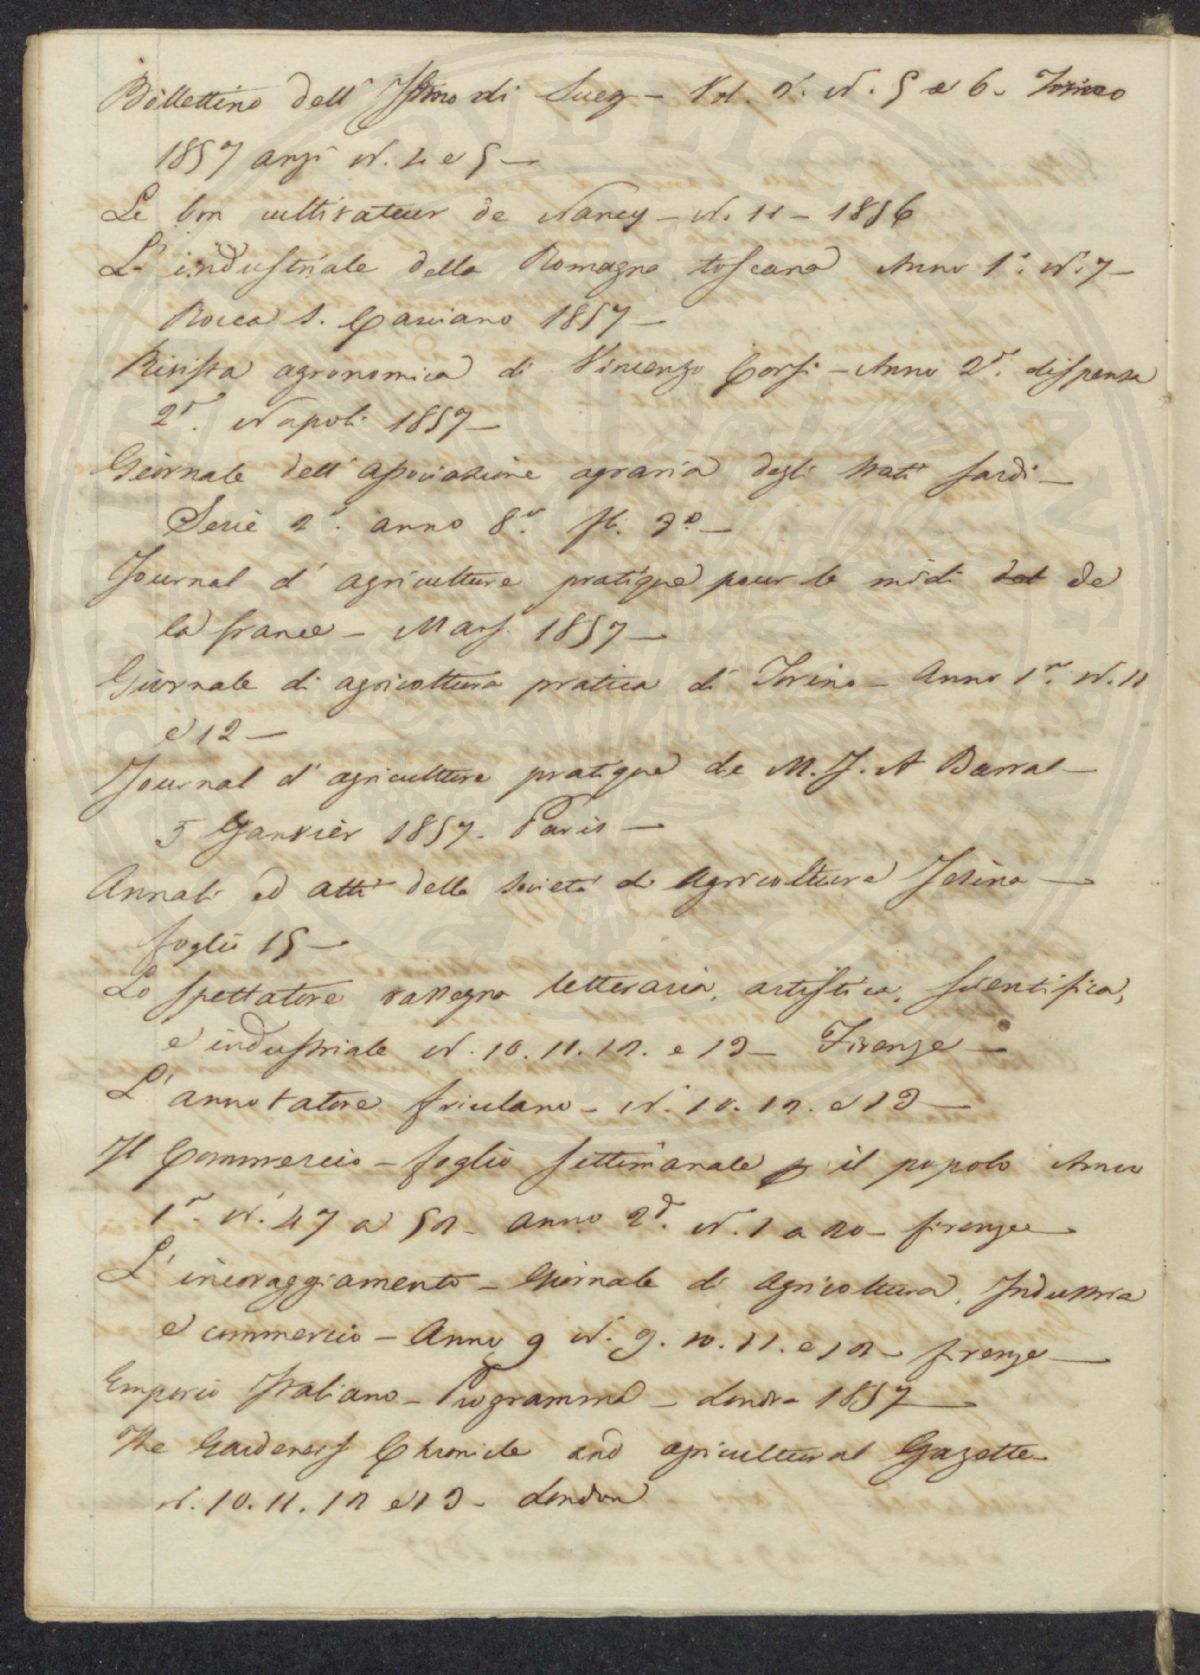 Bollettino dell' Istmo di Suez – Vol. 2°. N. 5 e 6. Torino
1857 anzi N. 4 e 5 –
Le bon cultivateur de Nancy – N. 11 – 1856
L' industriale della Romagna toscana Anno 1°. N. 7 –
Rocca S. Casciano 1857 –
Rivista agronomica di Vincenzo Corsi – Anno 2°. dispensa
2ª. Napoli 1857 –
Giornale dell' associazione agraria degli stati sardi –
Serie 2ª. anno 8°. fl. 7° –
Journal d' agriculture pratique pour le midi de
la france – Mars. 1857 –
Giornale di agricoltura pratica di Torino – Anno 1°. N. 11
e 12 –
Journal d' agriculture pratique de M. J. A Barral –
5 Janvier 1857. Paris –
Annali ed atti della società di Agricoltura Jesina –
foglio 15 –
Lo spettatore rassegna letteraria, artistica, scientifica,
e industriale N. 10. 11. 12. e 13 – Firenze –
L' annotatore friulano – N. 10. 12. e 13 –
Il Commercio – foglio settimanale p il popolo Anno
1°. N. 47 a 52 – anno 2°. N. 1 a 20 – firenze
L' incoraggiamento – Giornale di Agricoltura, Industria
e commercio – Anno 9 N. 9. 10. 11. e 12 – firenze –
Emporio Italiano – Programma – Londra 1857
The Gardeners Chronicle and agricultural Gazette
N. 10. 11. 12 e 13 – London